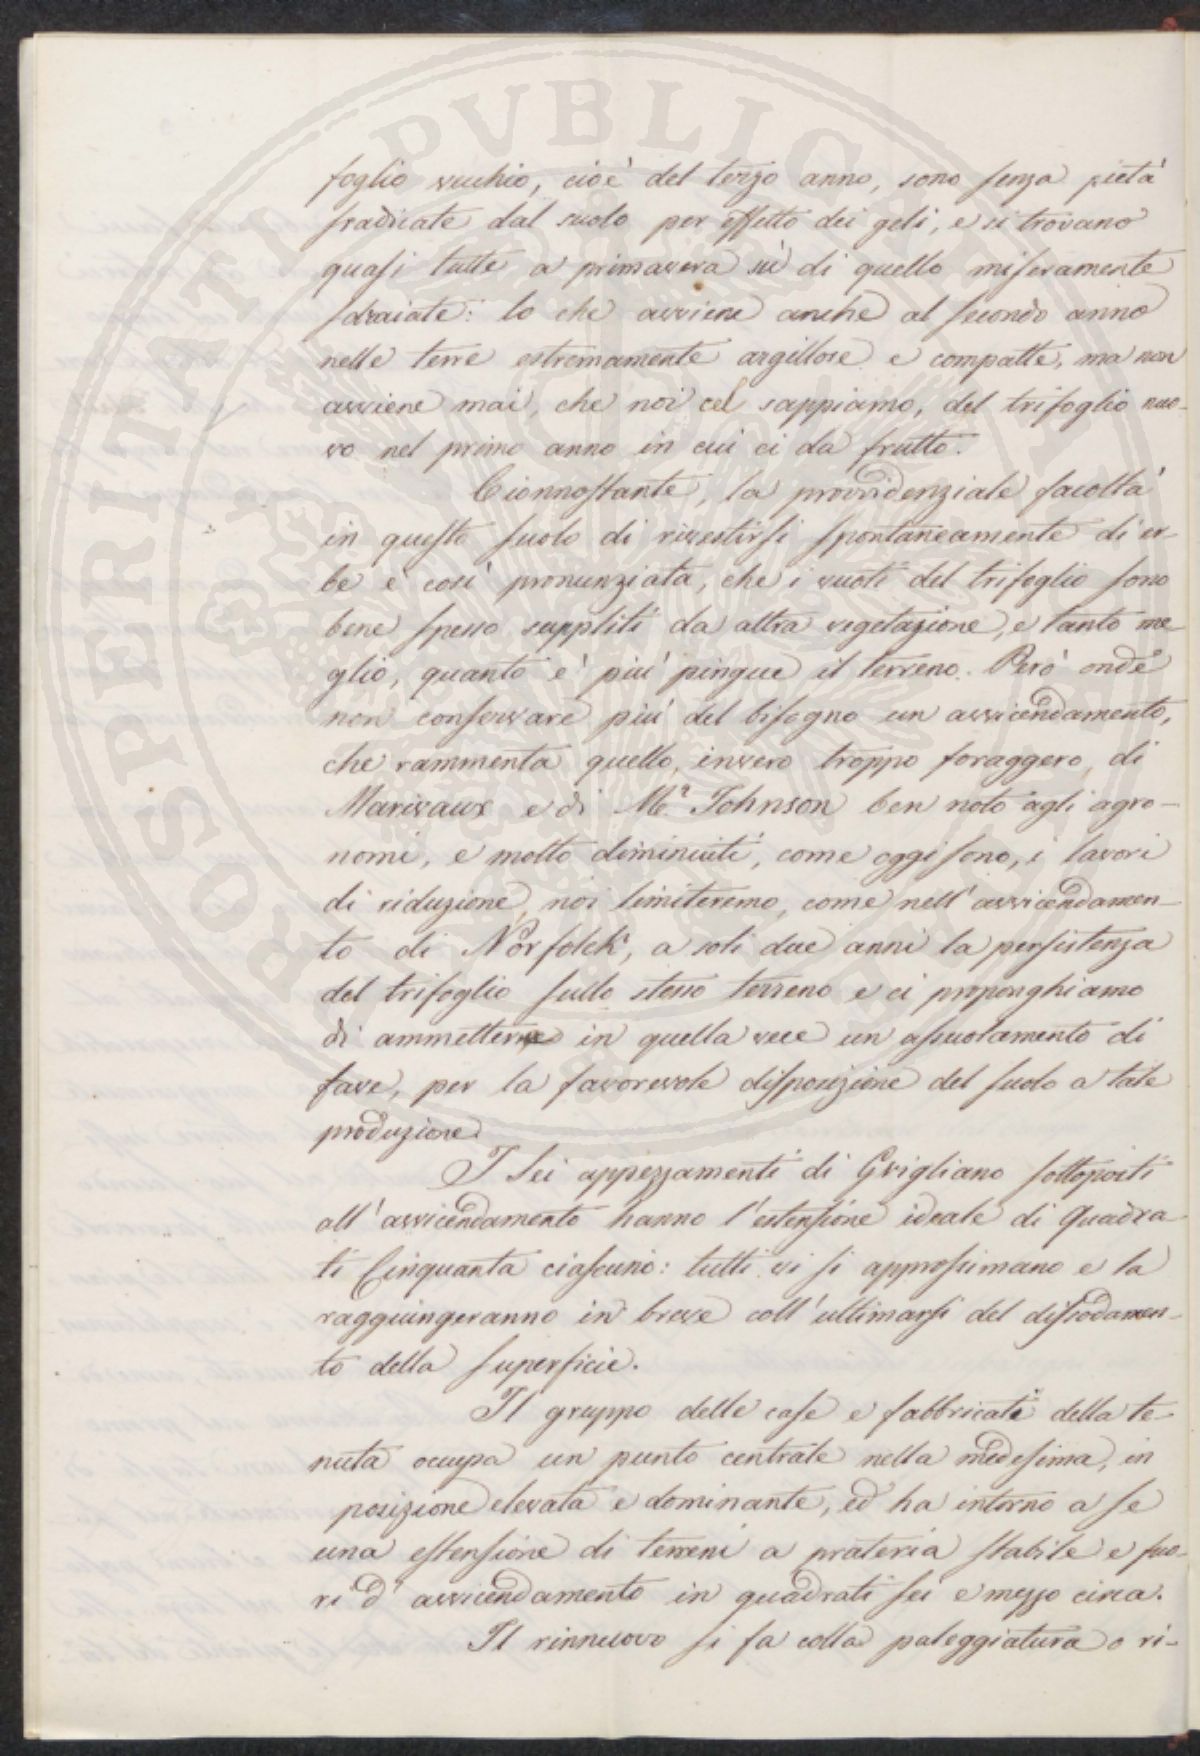 foglio vecchio, cioè del terzo anno, sono senza pietà
sradicate dal suolo per effetto dei geli, e si trovano
quasi tutte a primavera sù di quello miseramente
sdraiate: lo che avviene anche al secondo anno
nelle terre estremamente argillose e compatte, ma non
avviene mai, che noi cel sappiamo, del trifoglio nuo-
vo nel primo anno in cui ci da frutto.
Cionnostante, la provvidenziale facoltà
in questo suolo di rivestirsi spontaneamente di er-
be è così pronunziata, che i vuoti del trifoglio sono
bene spesso suppliti da altra vegetazione, e tanto me-
glio, quanto è più pingue il terreno. Però onde
non conservare più del bisogno un avvicendamento,
che rammenta quello, invero troppo foraggero, di
Marivaux e di Mr. Johnson ben noto agli agro-
nomi, e molto diminuiti, come oggi sono, i lavori
di riduzione, noi limiteremo, come nell'avvicendamen-
to di Norfolck, a soli due anni la persistenza
del trifoglio sullo stesso terreno e ci proponghiamo
di ammettere in quella vece un assuolamento di
fave, per la favorevole disposizione del suolo a tale
produzione.
I Sei appezzamenti di Grigliano sottoposti
all'avvicendamento hanno l'estensione ideale di Quadra-
ti Cinquanta ciascuno: tutti vi si approssimano e la
raggiungeranno in breve coll'ultimarsi del dissodamen-
to della superficie.
Il gruppo delle case e fabbricati della te-
nuta occupa un punto centrale nella medesima, in
posizione elevata e dominante, ed ha intorno a se
una estensione di terreni a prateria stabile e fuo-
ri d'avvicendamento in quadrati sei e mezzo circa.
Il rinnuovo si fa colla paleggiatura o ri-
PROSPERITATI PUBLICAE